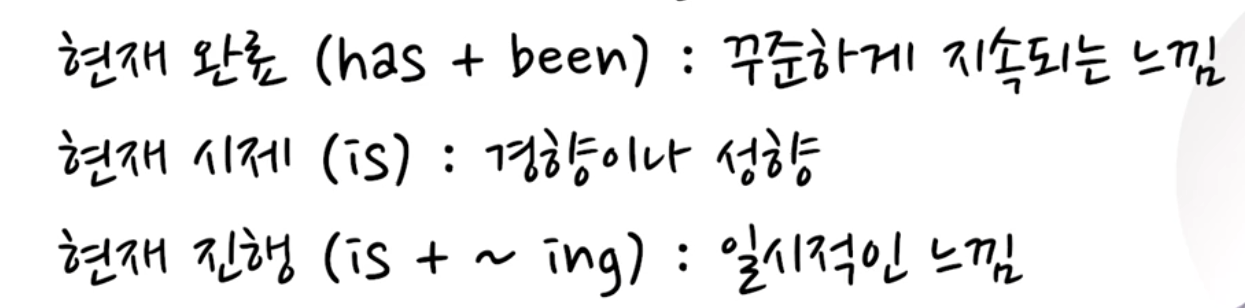 현재 완료 (has + been) : 꾸준하게 지속되는 느낌
현재 시제 (is) : 경향이나 성향
현재 진행 (is + ~ ing) : 일시적인 느낌